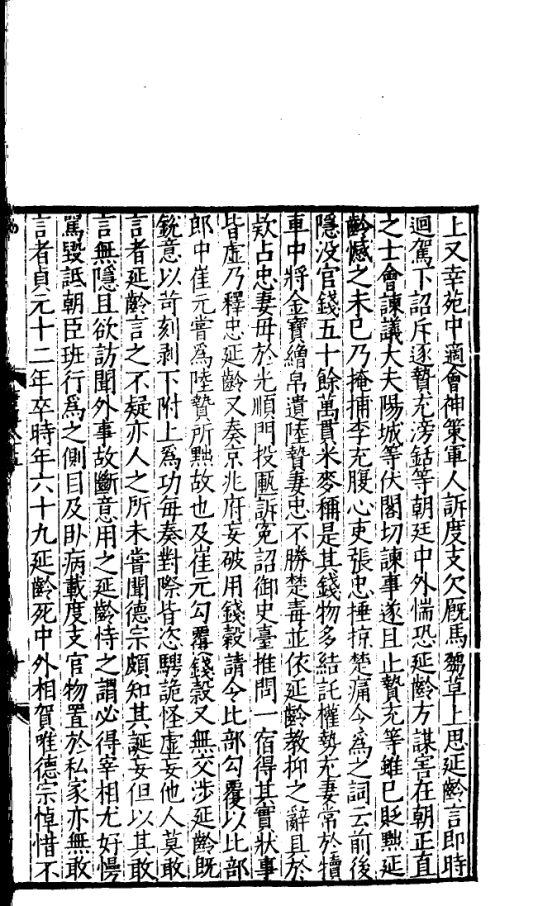 上又幸苑中適會神策軍人訴度支欠厩馬芻草上思延齡言即時
迴駕下詔斥逐贄充滂銛等朝廷中外惴恐延齡方謀害在朝正直
之士會諫議大夫陽城等伏閤切諫事遂且止贄充等雖已貶黜延
齡憾之未已乃掩捕李充腹心吏張忠捶掠楚痛令爲之詞云前後
隱没官錢五十餘萬貫米麥稱是其錢物多結託權勢充妻常於犢
車中將金寶繒帛遺陸贄妻忠不勝楚毒並依延齡教抑之辭且於
欵占忠妻母於光順門投匭訴冤詔御史臺推問一宿得其實狀事
皆虛乃釋忠延齡又奏京兆府妄破用錢穀請令比部勾覆以比部
郎中崔元嘗爲陸贄所黜故也及崔元勾覆錢穀又無交涉延齡既
銳意以苛刻剥下附上爲功每奏對際皆恣騁詭怪虛妄他人莫敢
言者延齡言之不疑亦人之所未嘗聞德宗頗知其誕妄但以其敢
言無隱且欲訪聞外事故斷意用之延齡恃之謂必得宰相尤好慢
罵毀詆朝臣班行爲之側目及卧病載度支官物置於私家亦無敢
言者貞元十二年卒時年六十九延齡死中外相賀唯德宗悼惜不